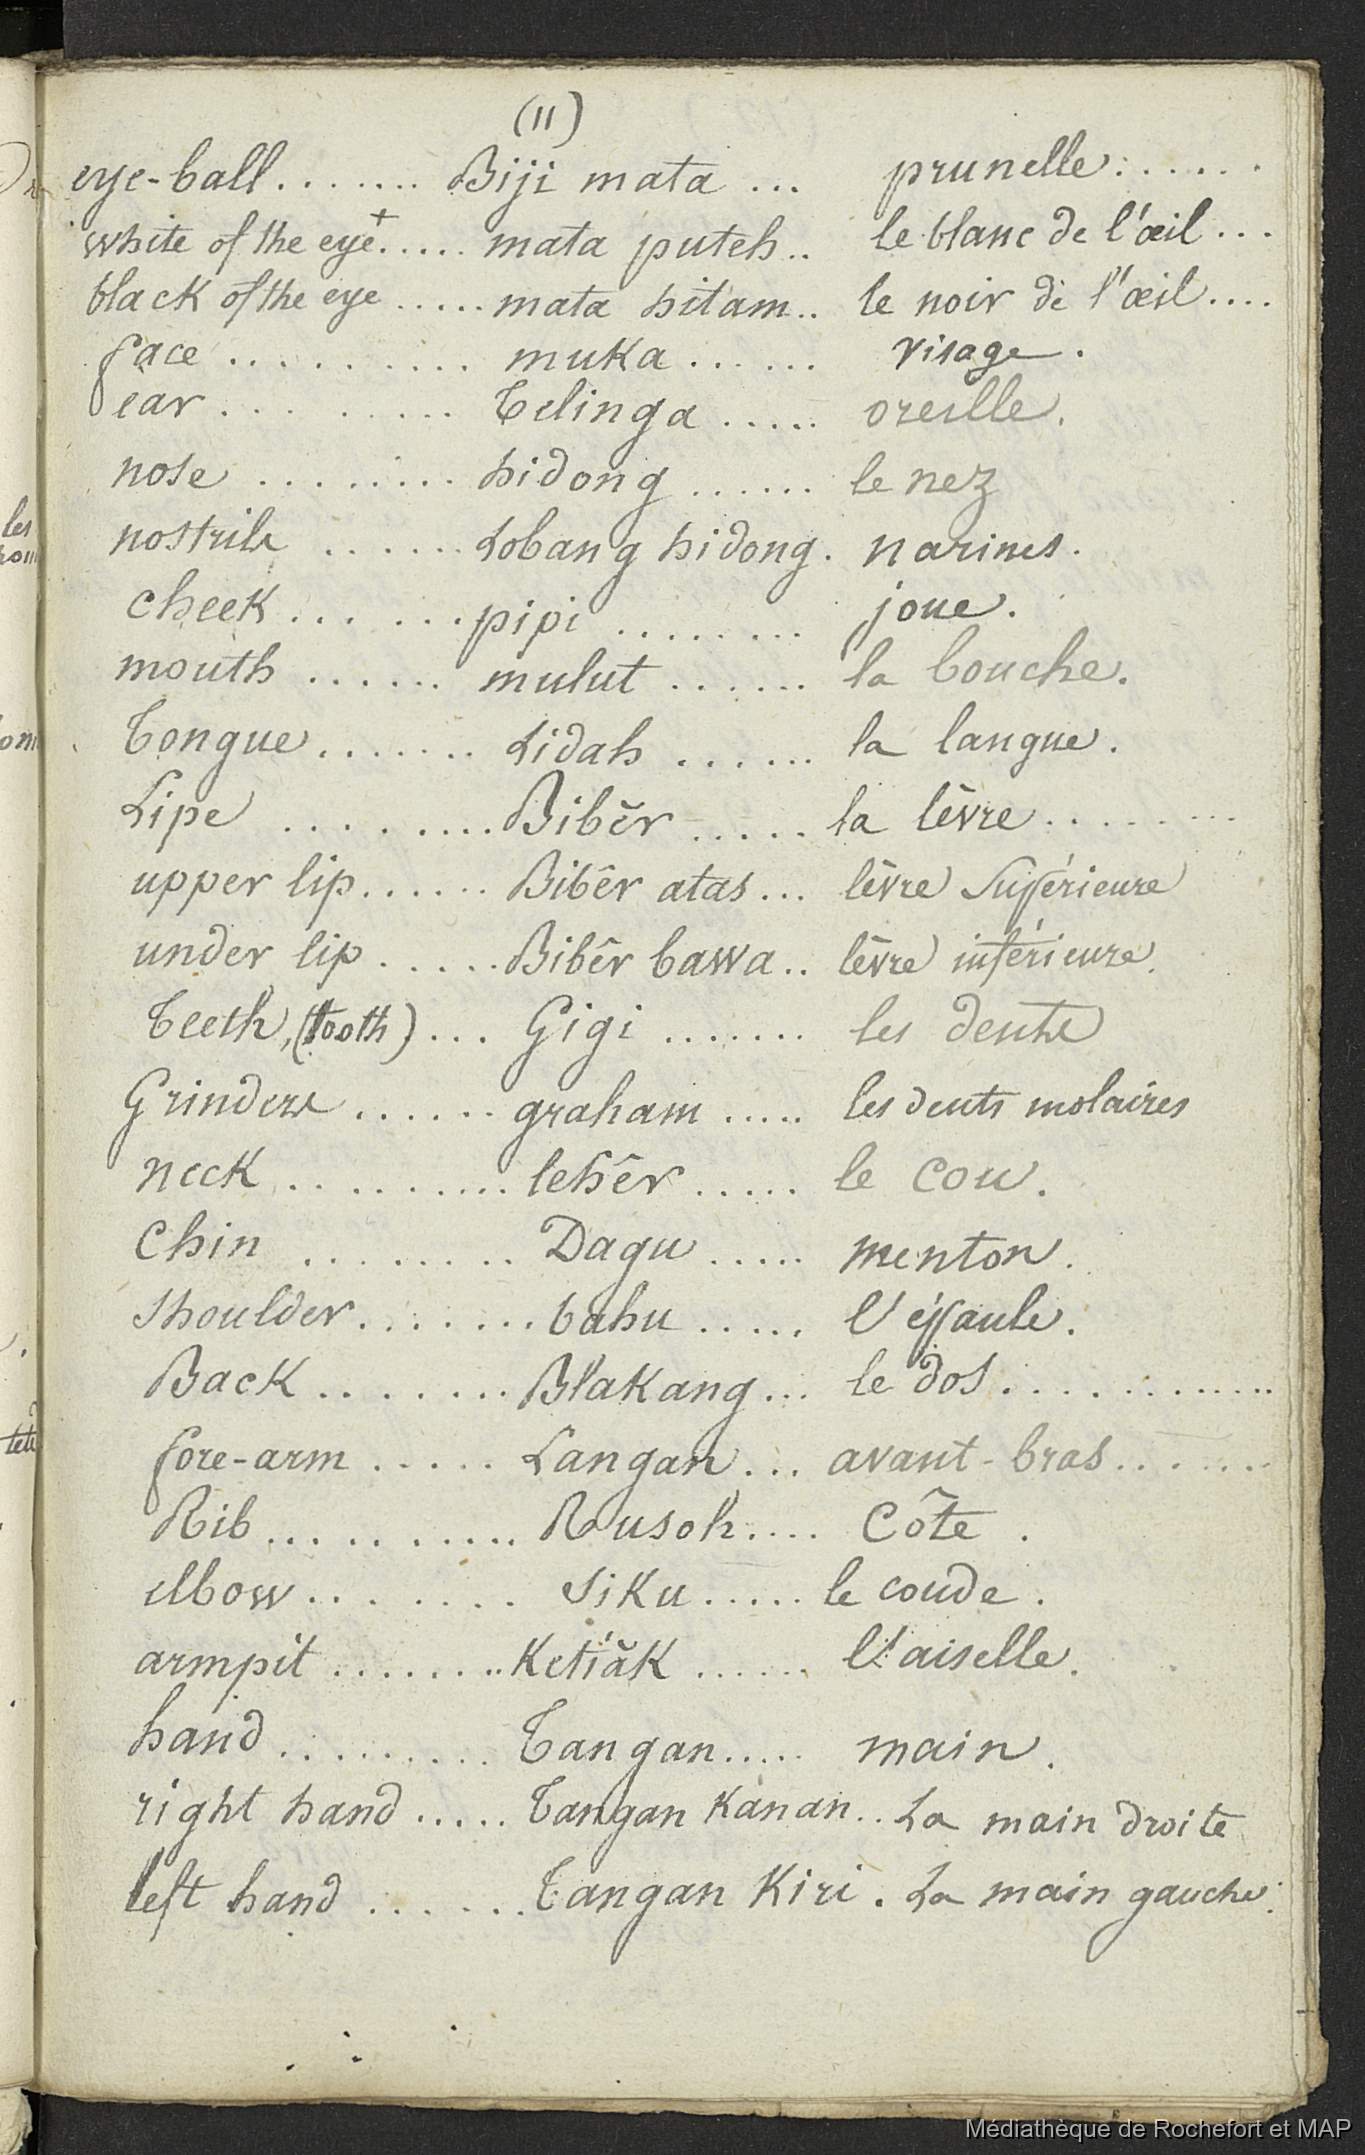 (11)
eye-ball....... Biji mata ... prunelle.......
white of the eye+..... mata puteh.. le blanc de l'œil...
black of the eye ..... mata hitam.. le noir de l'œil....
face .......... muka ...... visage.
ear .......... Telinga ..... oreille.
nose ........ hidong ...... le nez
nostrils ....... Lobang hidong. narines.
cheek....... pipi ........ joue.
mouth ...... mulut ....... la bouche.
Tongue....... Lidah ...... la langue.
Lips ......... Bibĕr ..... la lêvre .........
upper lip...... Bibêr atas ... lêvre Supérieure
under lip ...... Bibêr bawa.. lêvre inférieure.
Teeth, (tooth) ... Gigi ....... les dents
Grinders ....... graham ..... les dents molaires
neck .......... lehêr ..... le cou.
Chin ......... Dagu ..... menton.
Shoulder........ bahu ..... l'épaule.
Back ........ Blakang ... le dos............
fore-arm ..... Langan ... avant-bras.......
Rib .......... Rusoh.... Côte .
elbow ........ Siku ..... le coude.
armpit ........ Ketiăk ...... l'aiselle.
hand .......... Tangan..... main.
right hand ..... Tangan Kanan.. La main droite
left hand ....... Tangan Kiri . La main gauche.
les
tete
Médiathèque de Rochefort et MAP